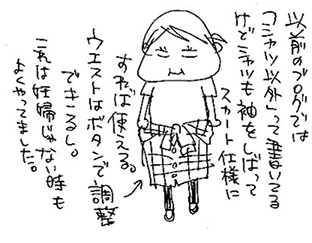 以前のブログでは
「シャツ以外」って書いてる
けどシャツも袖をしばって
スカート仕様に
すれば使える。
ウエストはボタンで調整
できるし。
これは妊婦じゃない時も
よくやってました。